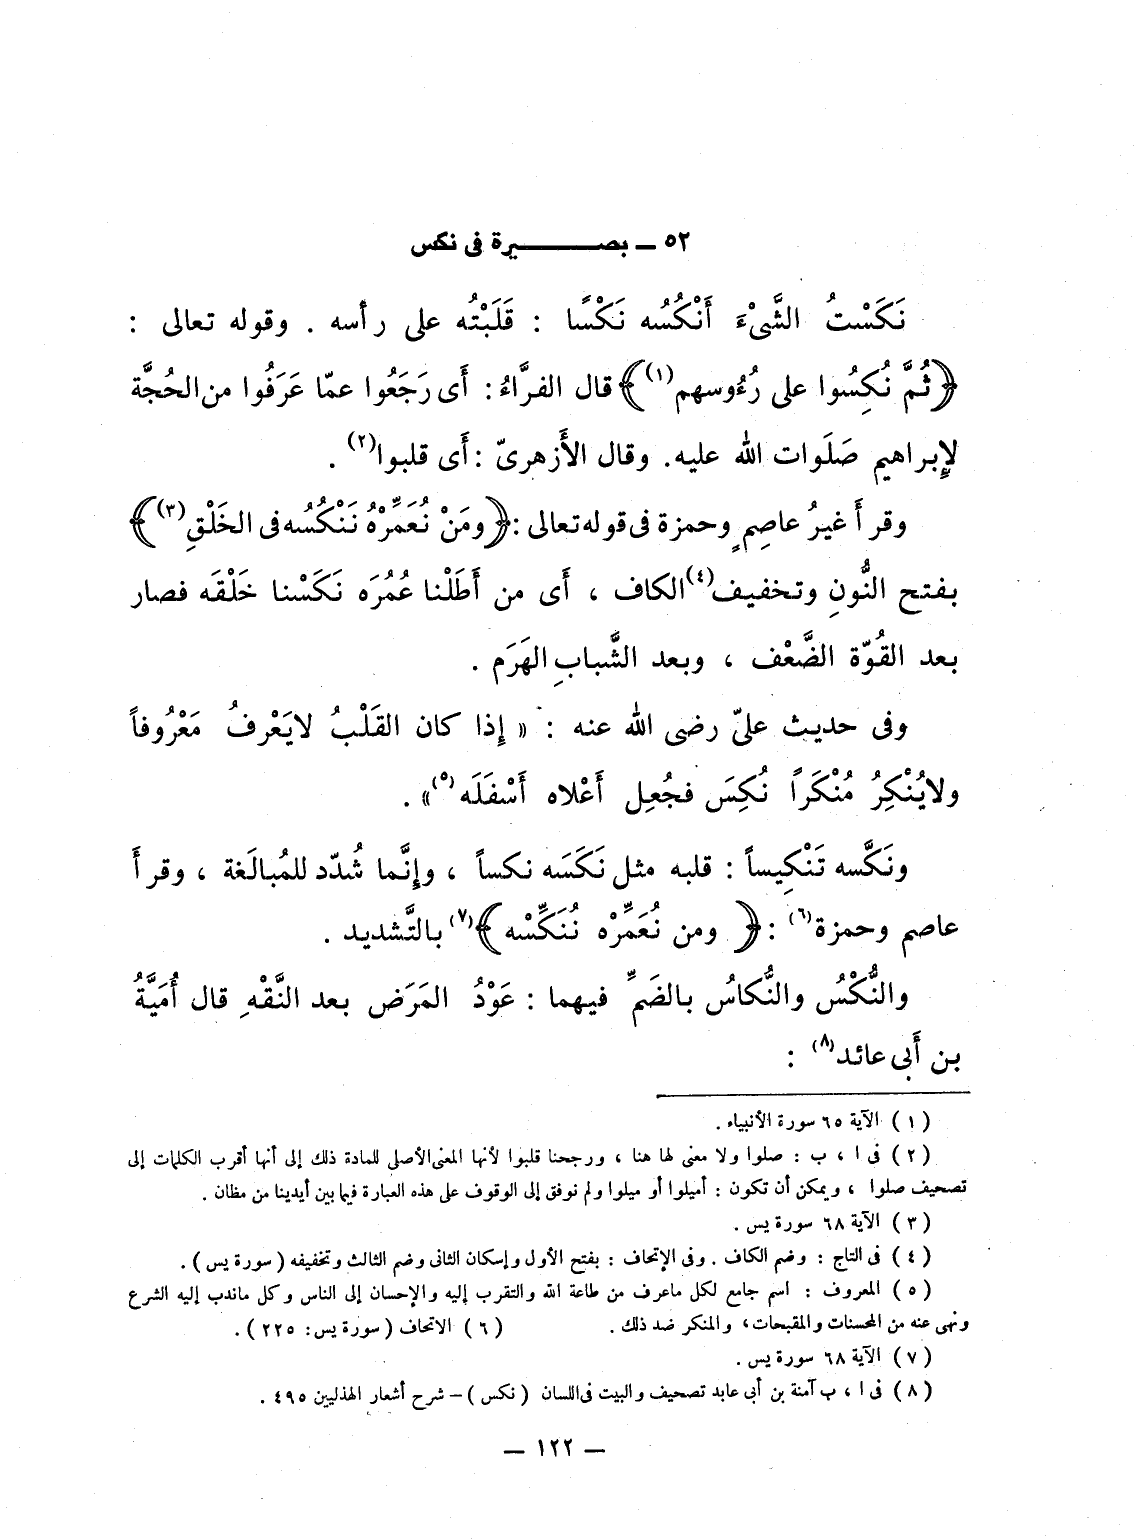 ٥٢ ــ بصــــــــيرة فى نكس
نَكَسْتُ الشَّىْءَ أَنْكُسُه نَكْسًا : قَلَبْتُه على رأسه . وقوله تعالى :
﴿ثُمَّ نُكِسُوا على رُءُوسهم(١)﴾ قال الفرَّاءُ : أَى رَجَعُوا عمّا عَرَفُوا من الحُجَّة
لإِبراهيم صَلَوات الله عليه. وقال الأَزهرىّ : أَى قلبوا(٢) .
وقرأَ غيرُ عاصِمٍ وحمزة فى قوله تعالى :﴿ومَنْ نُعَمِّرْهُ نَنْكُسُه فى الخَلْقِ(٣)﴾
بفتح النُّونِ وتخفيف(٤) الكاف ، أَى من أَطَلْنا عُمُرَه نَكَسْنا خَلْقَه فصار
بعد القُوّة الضَّعْف ، وبعد الشَّبابِ الهَرَم .
وفى حديث علىّ رضى الله عنه : « إِذا كان القَلْبُ لايَعْرِفُ مَعْرُوفاً
ولايُنْكِرُ مُنْكَراً نُكِسَ فجُعِل أَعْلاه أَسْفَلَه(٥)» .
ونَكَّسه تَنْكِيساً : قلبه مثل نَكَسَه نكساً ، وإِنَّما شُدّد للمُبالَغة ، وقرأَ
عاصم وحمزة(٦) :﴿ ومن نُعَمِّرْه نُنَكِّسْه ﴾(٧) بالتَّشديد .
والنُّكْسُ والنُّكاسُ بالضَمِّ فيهما : عَوْدُ المَرَض بعد النَّقْهِ قال أُمَيَّةُ
بن أَبى عائد(٨) :
( ١ ) الآية ٦٥ سورة الأنبياء .
( ٢ ) فى ا ، ب : صلوا ولا معنى لها هنا ، ورجحنا قلبوا لأنها المعنى الأصلى للمادة ذلك إلى أنها أقرب الكلمات إلى
تصحيف صلوا ، ويمكن أن تكون : أميلوا أو ميلوا ولم نوفق إلى الوقوف على هذه العبارة فيما بين أيدينا من مظان .
( ٣ ) الآية ٦٨ سورة يس .
( ٤ ) فى التاج : وضم الكاف . وفى الإتحاف : بفتح الأول وإسكان الثانى وضم الثالث وتخفيفه ( سورة يس ) .
( ٥ ) المعروف : اسم جامع لكل ماعرف من طاعة الله والتقرب إليه والإحسان إلى الناس وكل ماندب إليه الشرع
ونهى عنه من المحسنات والمقبحات، والمنكر ضد ذلك . ( ٦ ) الاتحاف ( سورة يس: ٢٢٥ ) .
( ٧ ) الآية ٦٨ سورة يس .
( ٨ ) فى ا ، ب آمنة بن أبى عابد تصحيف والبيت فى اللسان ( نكس ) – شرح أشعار الهذليين ٤٩٥ .
— ١٢٢ —